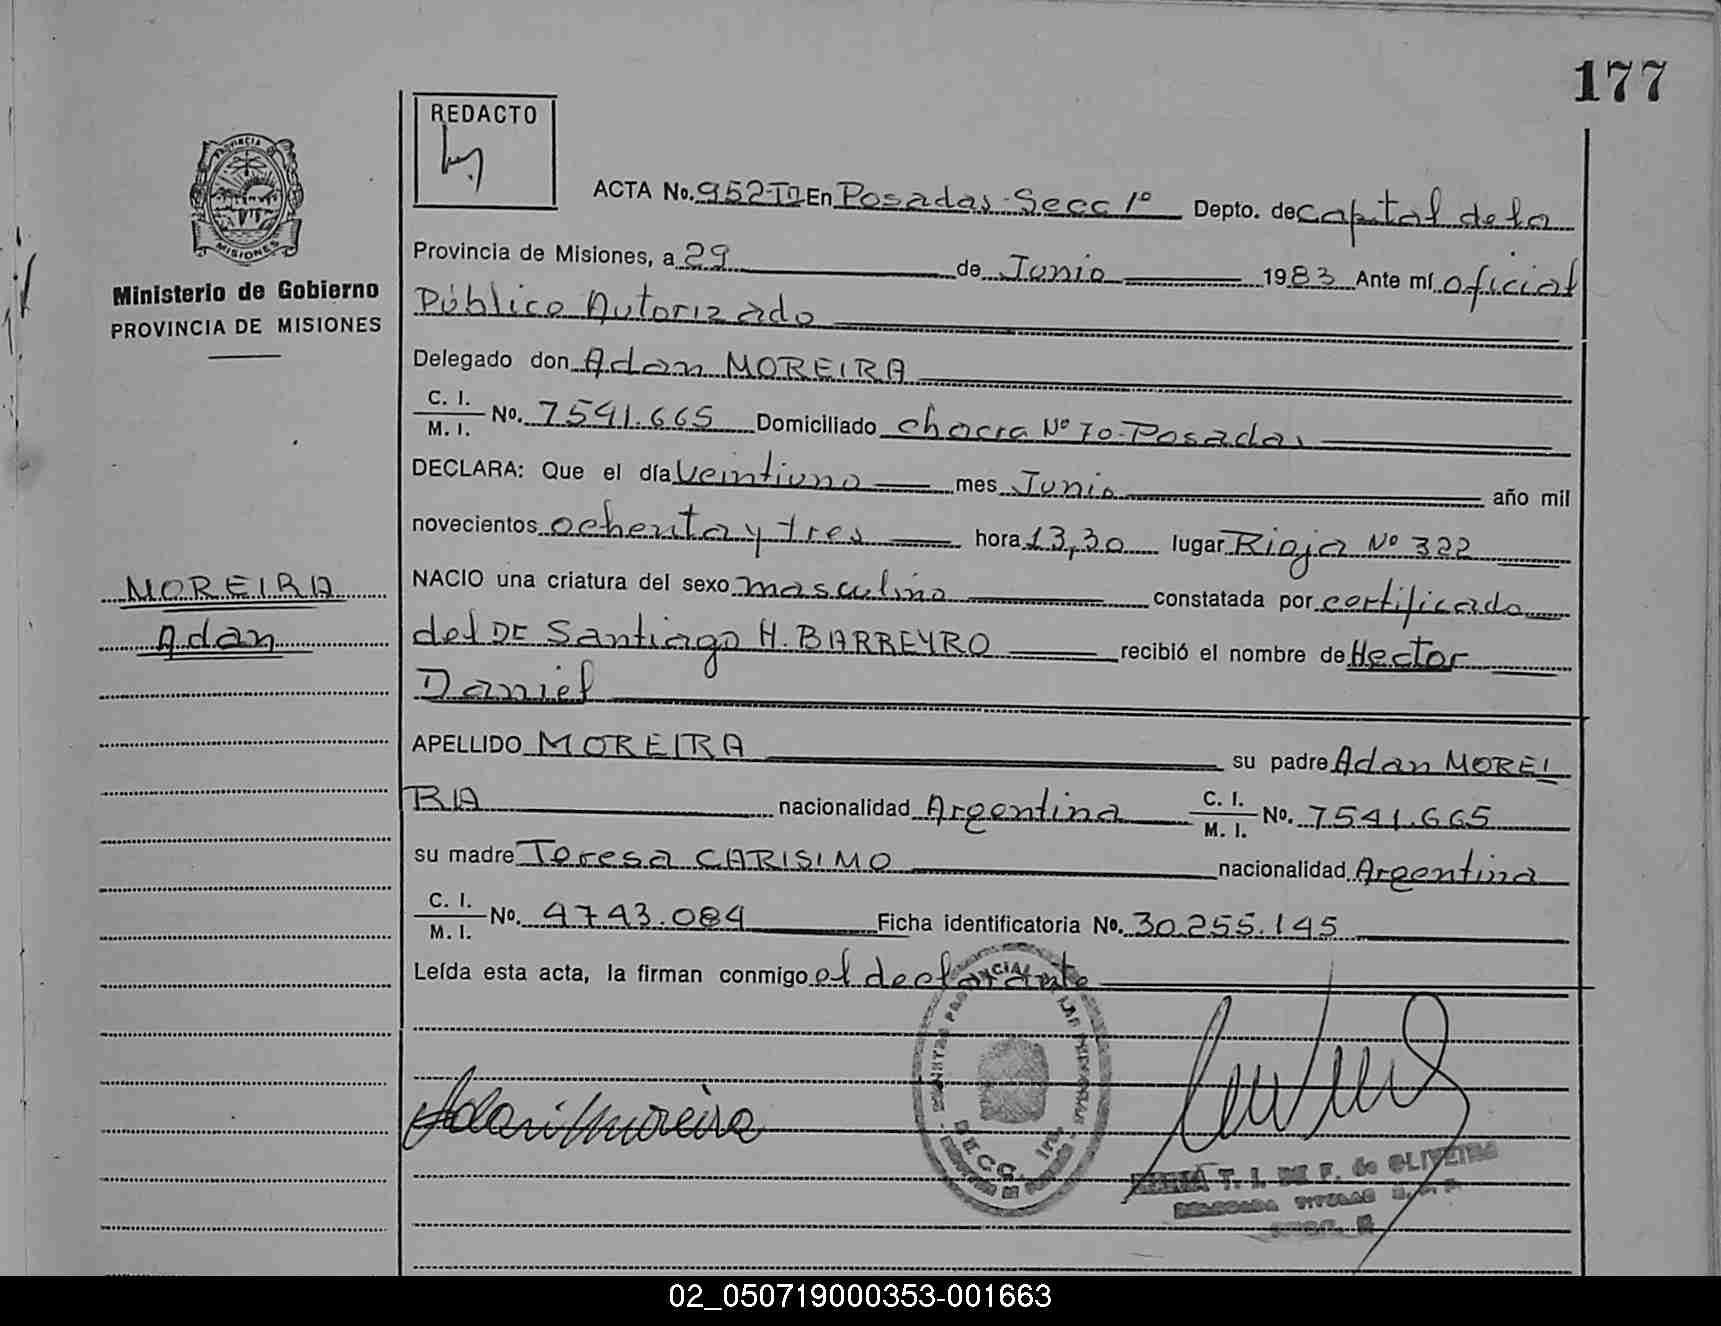 177
REDACTO
ACTA No. 952-TI En Posadas-Secc 1º Depto. de capital de la
Provincia de Misiones, a 29 de Junio 1983 Ante mí oficial
Público Autorizado
Ministerio de Gobierno
PROVINCIA DE MISIONES
Delegado don Adan MOREIRA
C. I.
M. I. No. 7541.665 Domiciliado chacra Nº 70-Posadas
DECLARA: Que el día veintiuno mes Junio año mil
novecientos ochenta y tres hora 13,30 lugar Rioja Nº 322
MOREIRA
Adan
NACIO una criatura del sexo masculino constatada por certificado
del Dr Santiago H. BARREYRO recibió el nombre de Hector
Daniel
APELLIDO MOREIRA su padre Adan MOREI
RA nacionalidad Argentina C. I. M. I. No. 7541.665
su madre Teresa CARISIMO nacionalidad Argentina
C. I.
M. I. No. 4743.084 Ficha identificatoria No. 30.255.145
Leída esta acta, la firman conmigo el declarante
Adan Moreira
T. I. DE F. de OLIVEIRA
DELEGADA TITULAR
02_050719000353-001663